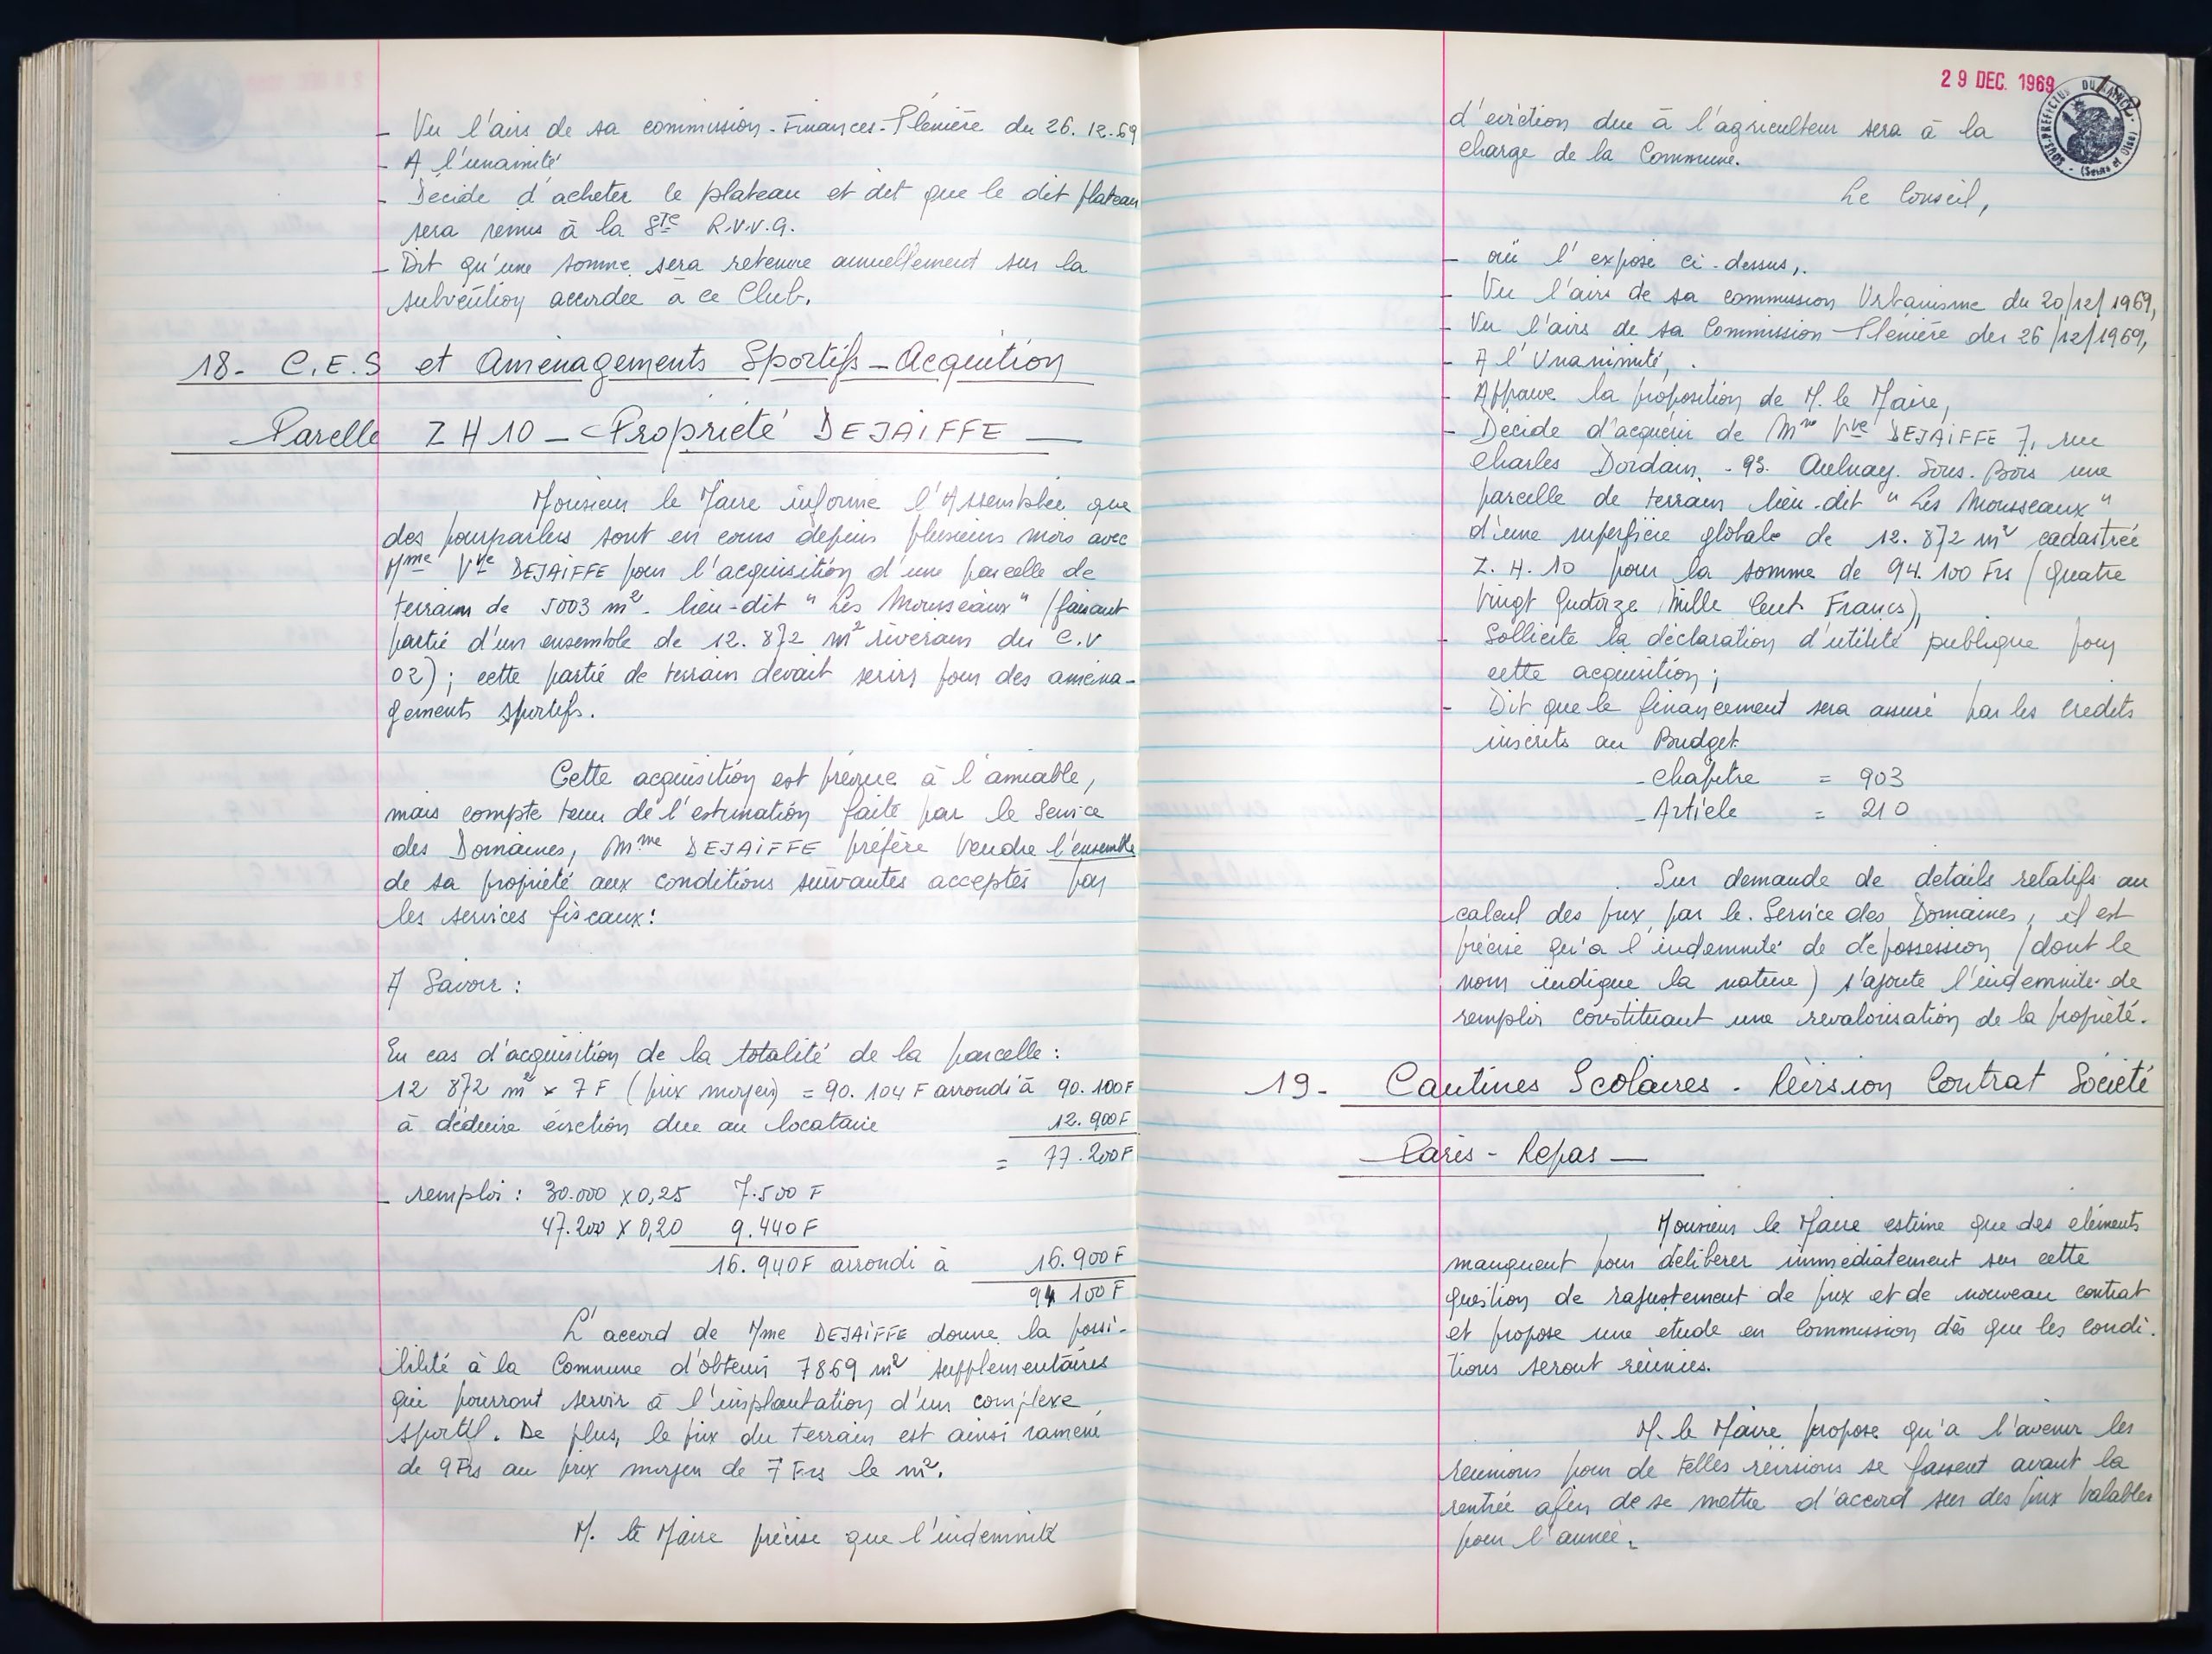 - Vu l'avis de sa commission - Finances - Plénière du 26.12.69
- A l'unanité
- Décide d'acheter le plateau et dit que le dit plateau
sera remis à la Sté R.V.V.G.
- Dit qu'une somme sera retenue annuellement sur la
subvention accordée à ce Club.
18- C.E.S et Aménagements Sportifs - Acquition
Parelle ZH10 - Propriété DEJAIFFE -
Monsieur le Maire informe l'Assemblée que
des pourparlers sont en cours depuis plusieurs mois avec
Mme Vve DEJAIFFE pour l'acquisition d'une parcelle de
terrain de 5003 m² - lieu-dit "Les Mousseaux" (faisant
partie d'un ensemble de 12.872 m² riverain du C.V
02) ; cette partie de terrain devait servir pour des aména-
gements sportifs.
Cette acquisition est prévue à l'amiable,
mais compte tenu de l'estimation faite par le Service
des Domaines, Mme DEJAIFFE préfère vendre l'ensemble
de sa propriété aux conditions suivantes acceptés par
les services fiscaux :
A Savoir :
En cas d'acquisition de la totalité de la parcelle :
12 872 m² x 7 F (prix moyen) = 90.104 F arrondi à 90.100 F
à déduire éviction due au locataire 12.900 F
= 77.200 F
- remploi : 30.000 x 0,25 7.500 F
47.200 x 0,20 9.440 F
16.940 F arrondi à 16.900 F
94 100 F
L'accord de Mme DEJAIFFE donne la possi-
bilité à la Commune d'obtenir 7869 m² supplémentaires
qui pourront servir à l'implantation d'un complexe
sportif. De plus, le prix du terrain est ainsi ramené
de 9 Frs au prix moyen de 7 Frs le m².
M. le Maire précise que l'indemnité
29 DEC. 1969
SOUS-PRÉFECTURE DU RAINCY (Seine et Oise)
d'éviction due à l'agriculteur sera à la
charge de la Commune.
Le Conseil,
- ouï l'exposé ci-dessus,
- Vu l'avis de sa commission Urbanisme du 20/12/1969,
- Vu l'avis de sa Commission Plénière du 26/12/1969,
- A l'Unanimité,
- Approuve la proposition de M. le Maire,
- Décide d'acquérir de Mme Vve DEJAIFFE 7, rue
Charles Dordain - 93. Aulnay. Sous. Bois une
parcelle de terrain lieu-dit "Les Mousseaux"
d'une superficie globale de 12.872 m² cadastrée
Z.H.10 pour la somme de 94.100 Frs (Quatre
Vingt Quatorze Mille Cent Francs),
- Sollicite la déclaration d'utilité publique pour
cette acquisition ;
- Dit que le financement sera assuré par les crédits
inscrits au Budget
- Chapitre = 903
- Article = 210
Sur demande de détails relatifs au
calcul des prix par le Service des Domaines, il est
précisé qu'à l'indemnité de dépossession (dont le
nom indique la nature) s'ajoute l'indemnité de
remploi constituant une revalorisation de la propriété.
19- Cantines Scolaires - Révision Contrat Société
Paris - Repas -
Monsieur le Maire estime que des éléments
manquent pour délibérer immédiatement sur cette
question de rajustement de prix et de nouveau contrat
et propose une étude en Commission dès que les condi-
tions seront réunies.
M. le Maire propose qu'à l'avenir les
réunions pour de telles révisions se fassent avant la
rentrée afin de se mettre d'accord sur des prix valables
pour l'année.